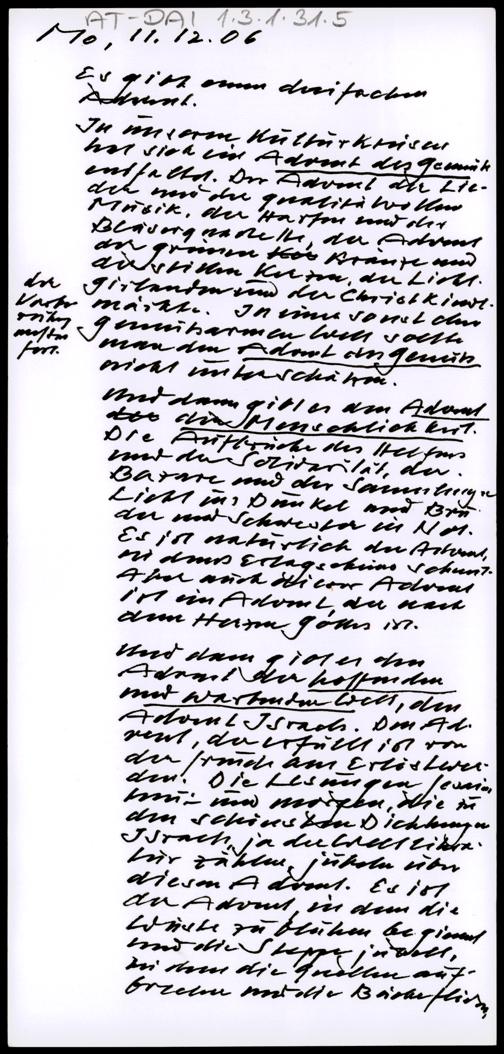 AT-DAI 1.3.1.31.5
Mo, 11.12.06
Es gibt einen dreifachen
Advent.
In unserem Kulturkreis
hat sich ein Advent des Gemüts
entfaltet. Der Advent der Lie-
der und der qualitätvollen
Musik, der Harfen und der
Bläserquartette, der Advent
der grünen Kränze und
der stillen Kerzen, der Licht-
girlanden und der Christkindl-
märkte. In einer sonst eher
gemütsarmen Welt sollte
man den Advent des Gemüts
nicht unterschätzen.
die
fort.
Und dann gibt es den Advent
der Menschlichkeit.
Die Aufbrüche des Helfens
und der Solidarität, der
Basare und der Sammlungen
Licht ins Dunkel und Bru-
der und Schwester in Not.
Es ist natürlich der Advent,
in dem Erlagscheine
Aber auch dieser Advent
ist ein Advent, der nach
dem Herzen Gottes ist.
Und dann gibt es den
Advent der hoffenden
und wartenden Welt, den
Advent Israels. Den Ad-
vent, der erfüllt ist von
der Freude am Erlöstwer-
den. Die Lesungen
und morgen, die zu
den schönsten Dichtungen
Israels, ja der Weltlitera-
tur zählen, jubeln über
diesen Advent. Es ist
der Advent, in dem die
Wüste zu blühen beginnt
und die Steppe jubelt,
in dem die Quellen auf-
brechen und die Bäche fließen,